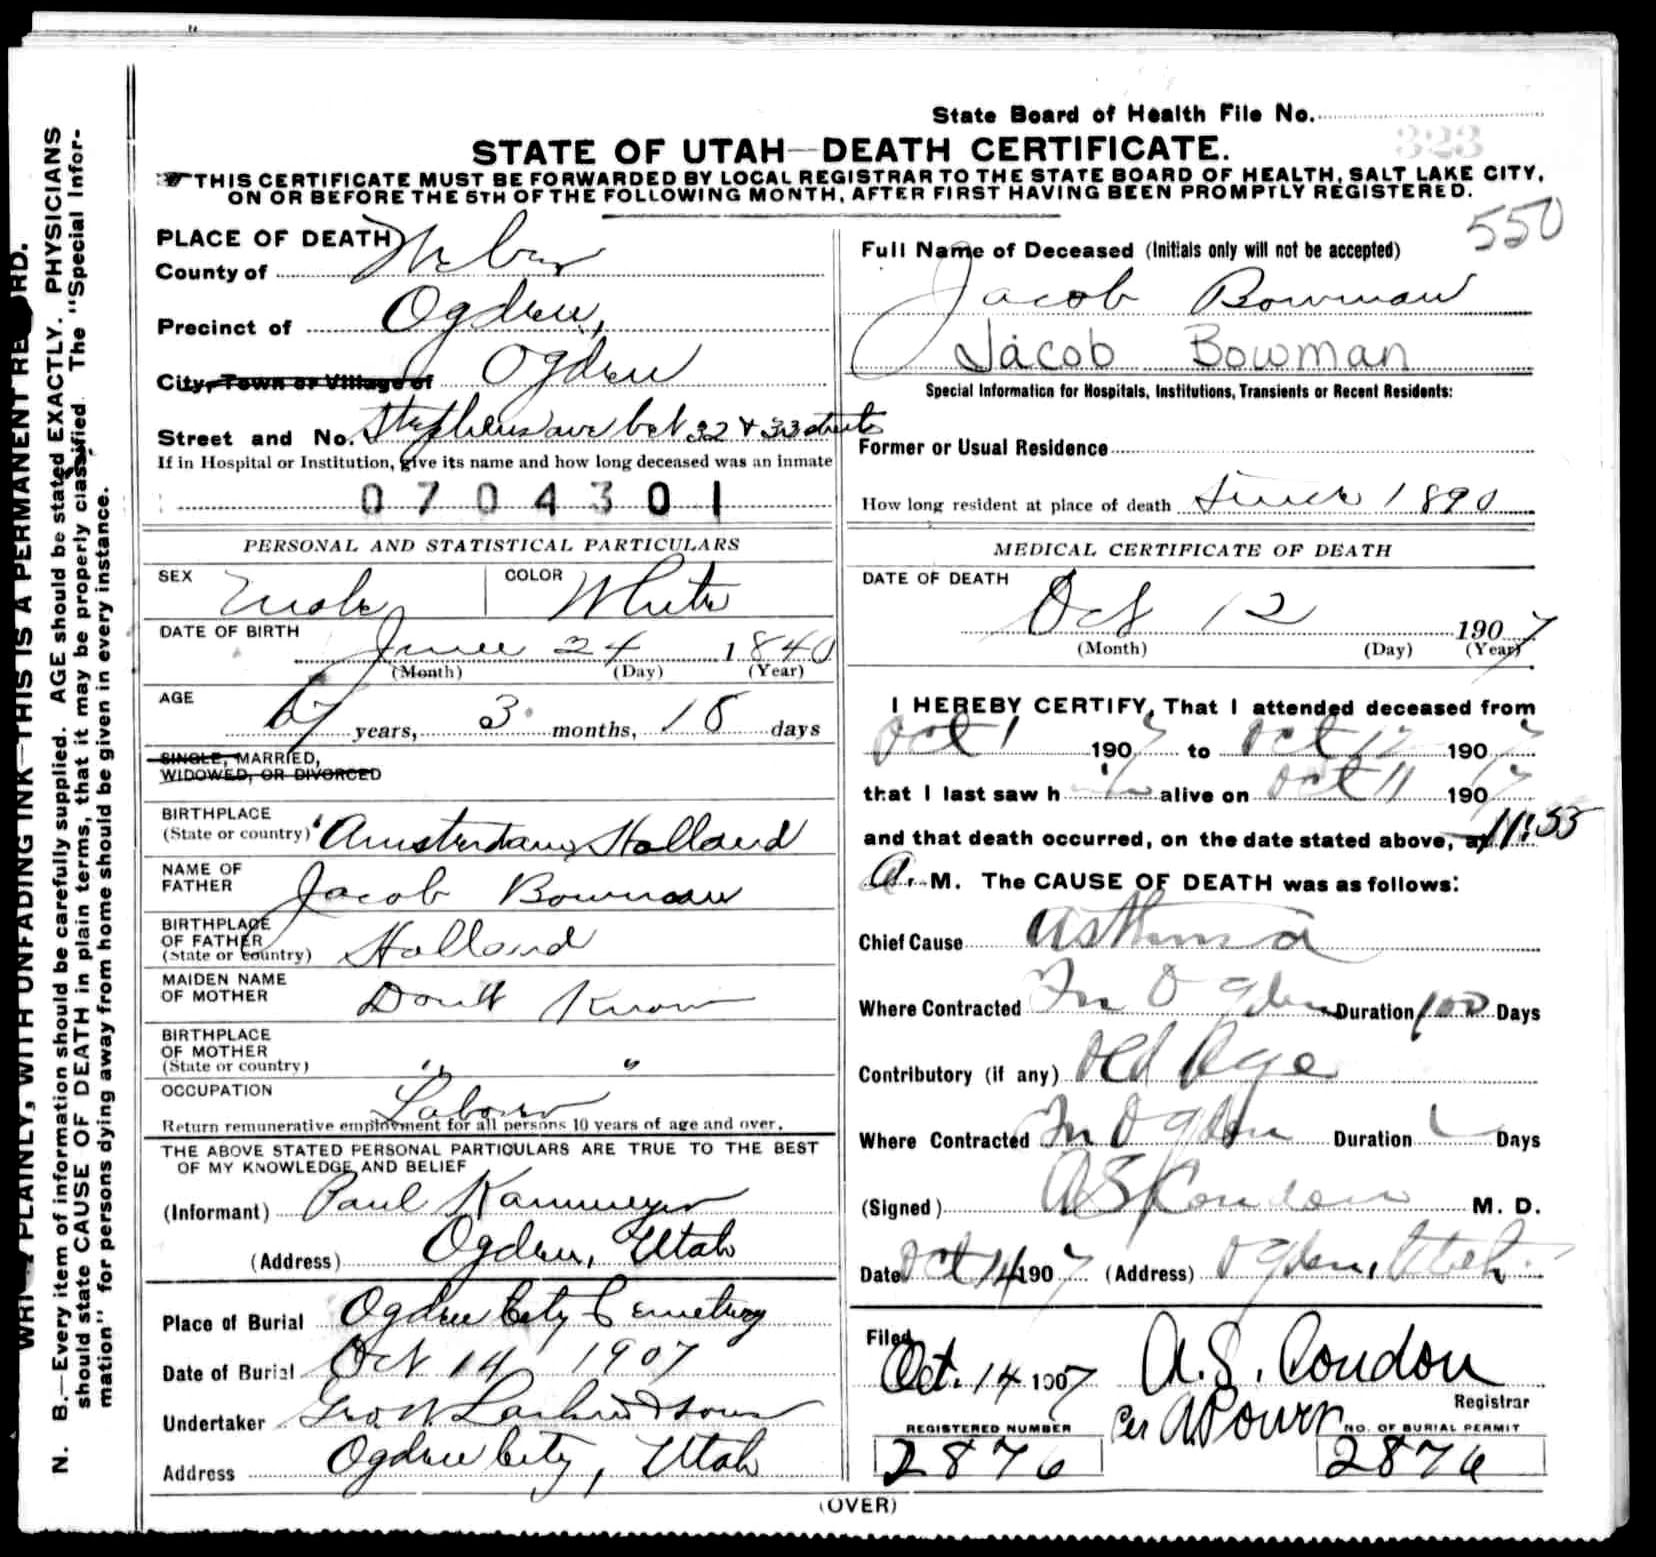 State Board of Health File No.
323
STATE OF UTAH—DEATH CERTIFICATE.
THIS CERTIFICATE MUST BE FORWARDED BY LOCAL REGISTRAR TO THE STATE BOARD OF HEALTH, SALT LAKE CITY,
ON OR BEFORE THE 5TH OF THE FOLLOWING MONTH, AFTER FIRST HAVING BEEN PROMPTLY REGISTERED.
550
PLACE OF DEATH
County of Weber
Precinct of Ogden,
City, Town or Village of Ogden
Street and No. Stephens ave bet 32 & 33 streets
If in Hospital or Institution, give its name and how long deceased was an inmate
0704301
PERSONAL AND STATISTICAL PARTICULARS
SEX Male COLOR White
DATE OF BIRTH
June 24 1840
(Month) (Day) (Year)
AGE
67 years, 3 months, 18 days
SINGLE, MARRIED,
WIDOWED, OR DIVORCED
BIRTHPLACE
(State or country) Amsterdam Holland
NAME OF
FATHER Jacob Bowman
BIRTHPLACE
OF FATHER
(State or country) Holland
MAIDEN NAME
OF MOTHER Dont Know
BIRTHPLACE
OF MOTHER
(State or country) " "
OCCUPATION Laborer
Return remunerative employment for all persons 10 years of age and over.
THE ABOVE STATED PERSONAL PARTICULARS ARE TRUE TO THE BEST
OF MY KNOWLEDGE AND BELIEF
(Informant) Paul Kammeyer
(Address) Ogden, Utah
Place of Burial Ogden City Cemetery
Date of Burial Oct 14 1907
Undertaker Geo W Larkin & Sons
Address Ogden City, Utah
Full Name of Deceased (Initials only will not be accepted)
Jacob Bowman
Jacob Bowman
Special Information for Hospitals, Institutions, Transients or Recent Residents:
Former or Usual Residence
How long resident at place of death Since 1890
MEDICAL CERTIFICATE OF DEATH
DATE OF DEATH
Oct 12 1907
(Month) (Day) (Year)
I HEREBY CERTIFY, That I attended deceased from
Oct 1 1907 to Oct 12 1907
that I last saw him alive on Oct 11 1907
and that death occurred, on the date stated above, at 11:55
A. M. The CAUSE OF DEATH was as follows:
Chief Cause Asthma
Where Contracted In Ogden Duration 100 Days
Contributory (if any) Old Age
Where Contracted In Ogden Duration Days
(Signed) A S Condon M. D.
Date Oct 14 1907 (Address) Ogden, Utah.
Filed
Oct. 14 1907 A. S. Condon
Registrar
Per
REGISTERED NUMBER NO. OF BURIAL PERMIT
2876 2876
(OVER)
WRITE PLAINLY, WITH UNFADING INK—THIS IS A PERMANENT RECORD.
N. B.—Every item of information should be carefully supplied. AGE should be stated EXACTLY. PHYSICIANS
should state CAUSE OF DEATH in plain terms, that it may be properly classified. The "Special Infor-
mation" for persons dying away from home should be given in every instance.